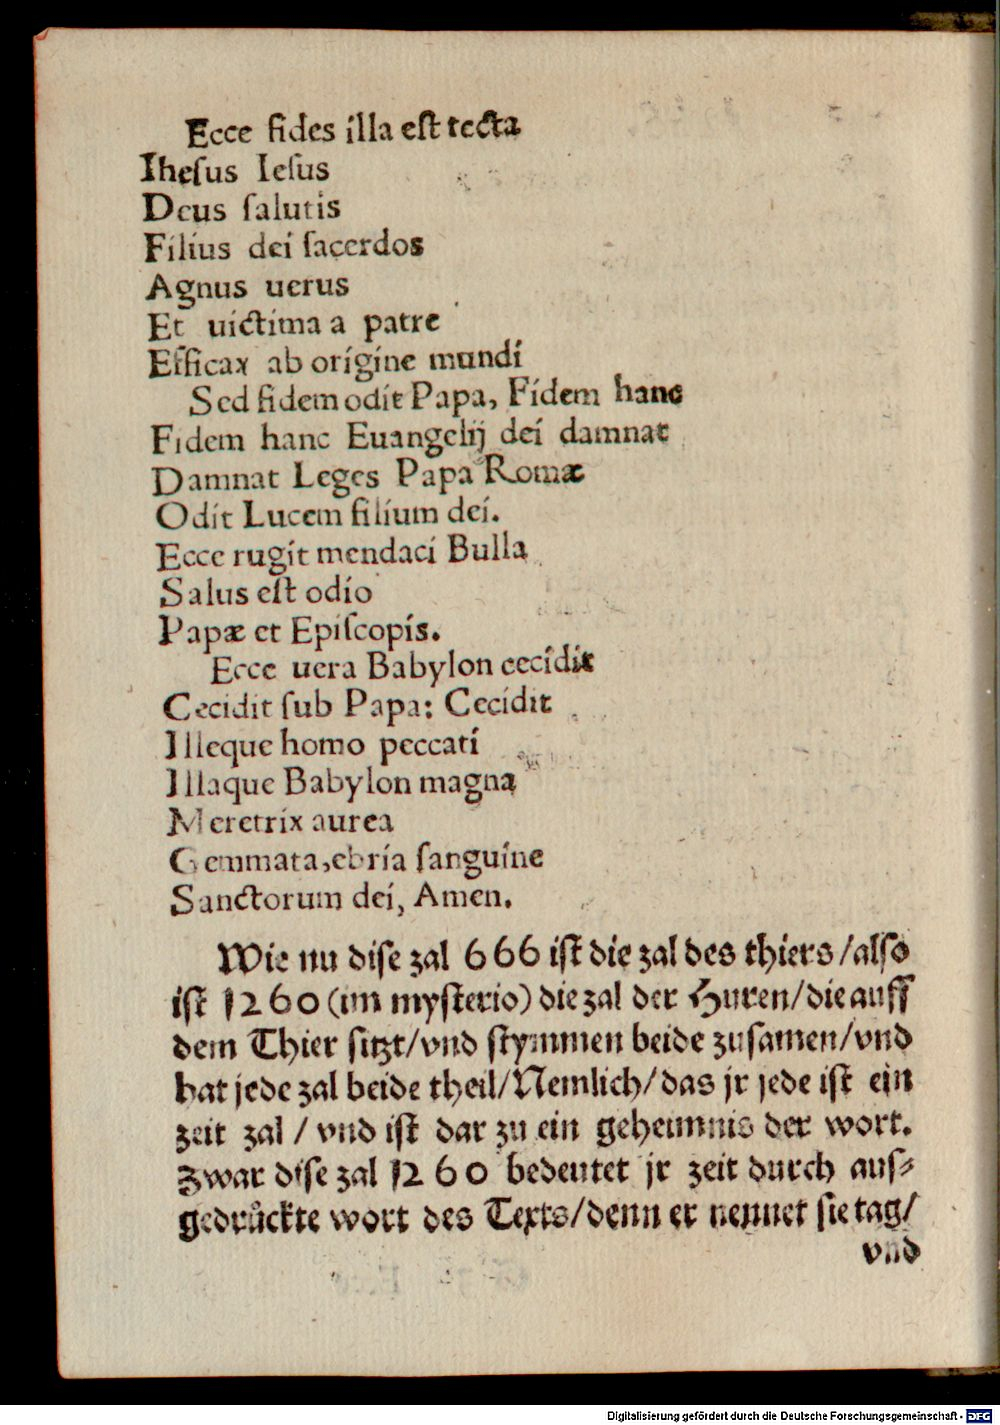 Ecce fides illa est recta
Ihesus Iesus
Deus salutis
Filius dei sacerdos
Agnus uerus
Et uictima a patre
Efficax ab origine mundi
Sed fidem odit Papa, Fidem hanc
Fidem hanc Euangelij dei damnat
Damnat Leges Papa Romæ
Odit Lucem filium dei.
Ecce rugit mendaci Bulla
Salus est odio
Papæ et Episcopis.
Ecce uera Babylon cecidit
Cecidit sub Papa: Cecidit
Illeque homo peccati
Illaque Babylon magna
Meretrix aurea
Gemmata, ebria sanguine
Sanctorum dei, Amen.
Wie nu dise zal 666 ist die zal des thiers/also
ist 1260 (im mysterio) die zal der Huren/die auff
dem Thier sitzt/vnd stymmen beide zusamen/vnd
hat jede zal beide theil/Nemlich/das jr jede ist ein
zeit zal / vnd ist dar zu ein geheimnis der wort.
Zwar dise zal 1260 bedeutet jr zeit durch aus⸗
gedruͤckte wort des Texts/denn er nennet sie tag/
vnd
Digitalisierung gefördert durch die Deutsche Forschungsgemeinschaft - DFG